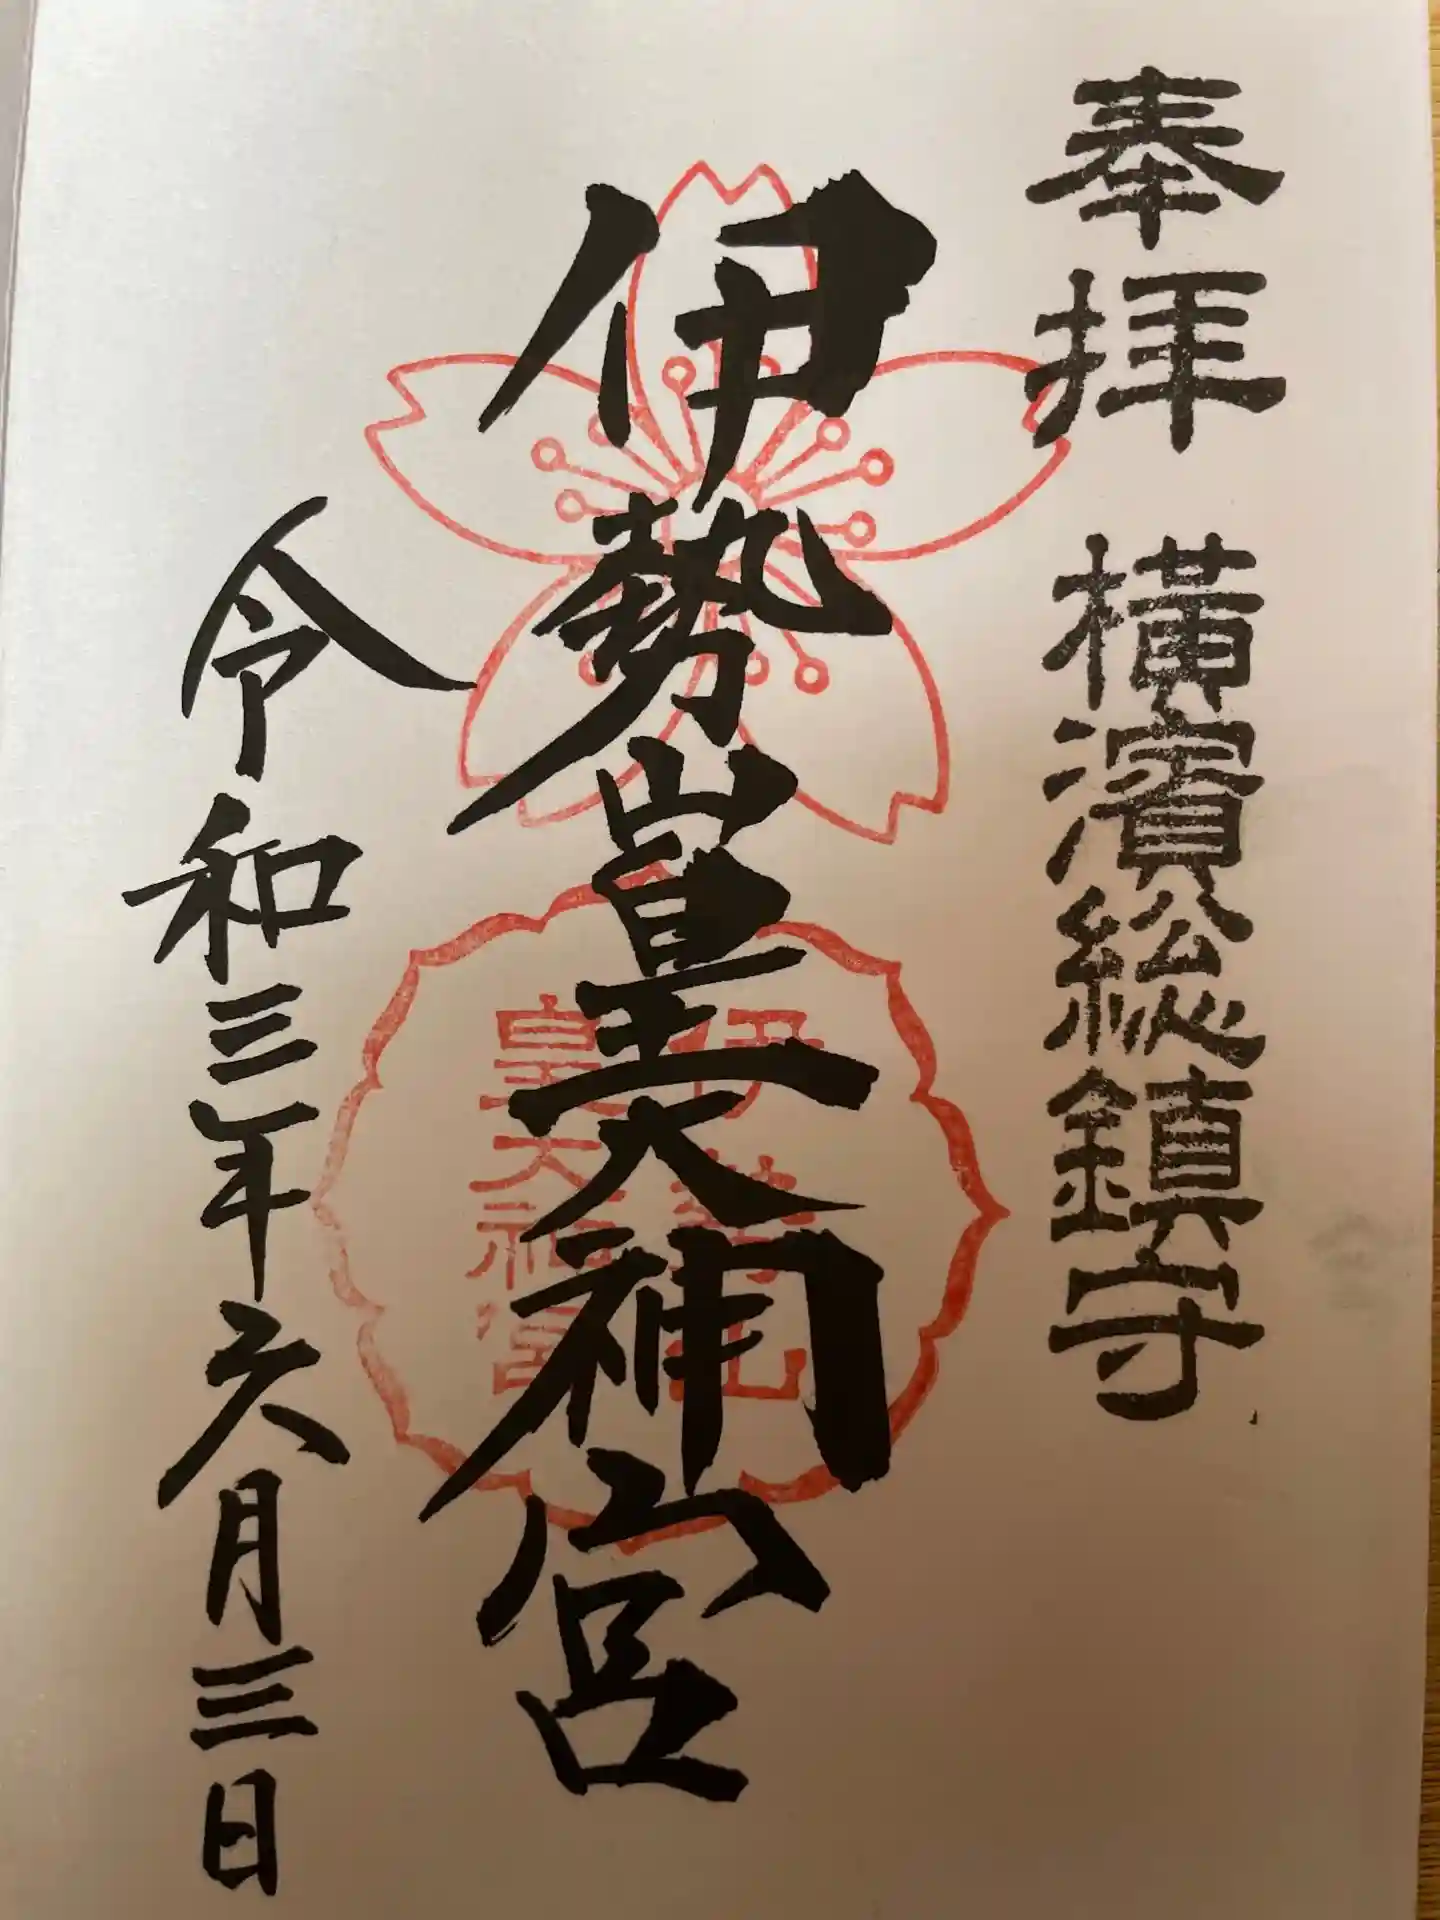 奉拝 横濱総鎮守
伊勢山皇大神宮
伊勢山
皇大神宮
令和三年六月三日